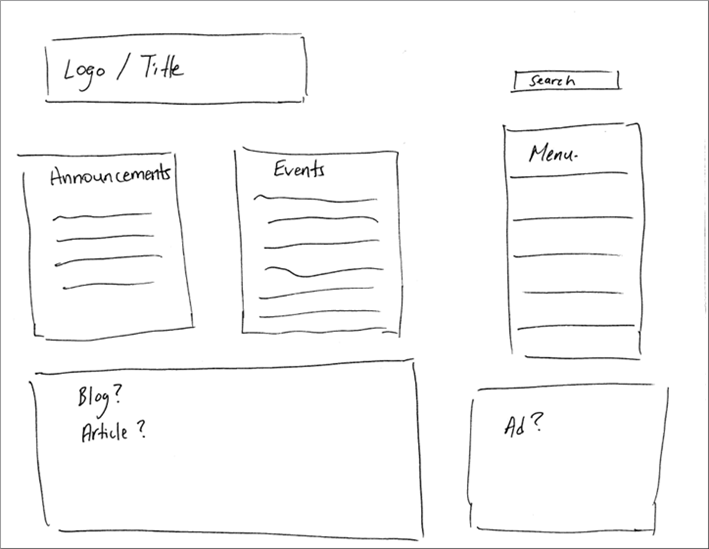 Logo / Title
Search
Announcements
Events
Menu.
Blog?
Article?
Ad?